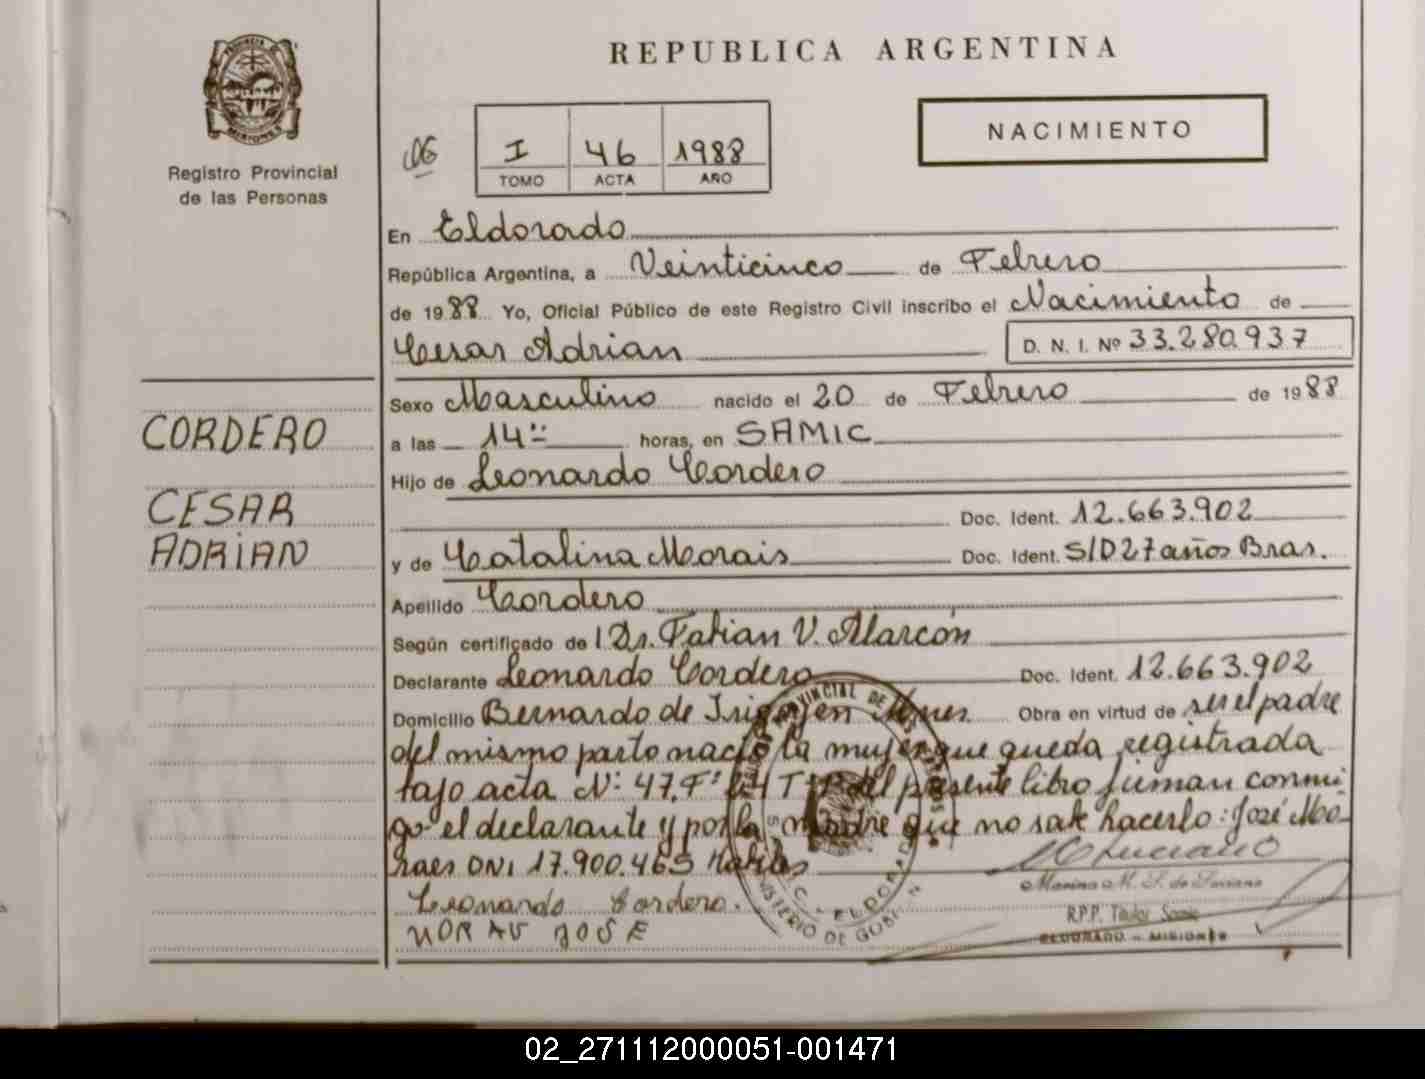 REPUBLICA ARGENTINA
PROVINCIA DE MISIONES
Registro Provincial
de las Personas
I 46 1988
TOMO ACTA AÑO
NACIMIENTO
En Eldorado
República Argentina, a Veinticinco de Febrero
de 1988 Yo, Oficial Público de este Registro Civil inscribo el Nacimiento de
Cesar Adrian D. N. I. Nº 33.280.937
Sexo Masculino nacido el 20 de Febrero de 1988
CORDERO
a las 14 horas, en SAMIC
Hijo de Leonardo Cordero
CESAR
Doc. Ident. 12.663.902
ADRIAN
y de Catalina Morais Doc. Ident. S/D 27 años Bras.
Apellido Cordero
Según certificado de l Dr. Fabian V. Alarcón
Declarante Leonardo Cordero Doc. Ident. 12.663.902
Domicilio Bernardo de Irigoyen Mnes. Obra en virtud de ser el padre
del mismo parto nació la mujer que queda registrada
bajo acta Nº 47, Fº 24 T=Iº del presente libro firman conmi-
go el declarante y por la madre que no sabe hacerlo: José Mo-
raes DNI 17.900.465 Habiles
Leonardo Cordero.
MORAES JOSE
Marina M. S. de Luciano
R.P.P. Titular
ELDORADO - MISIONES
02_271112000051-001471